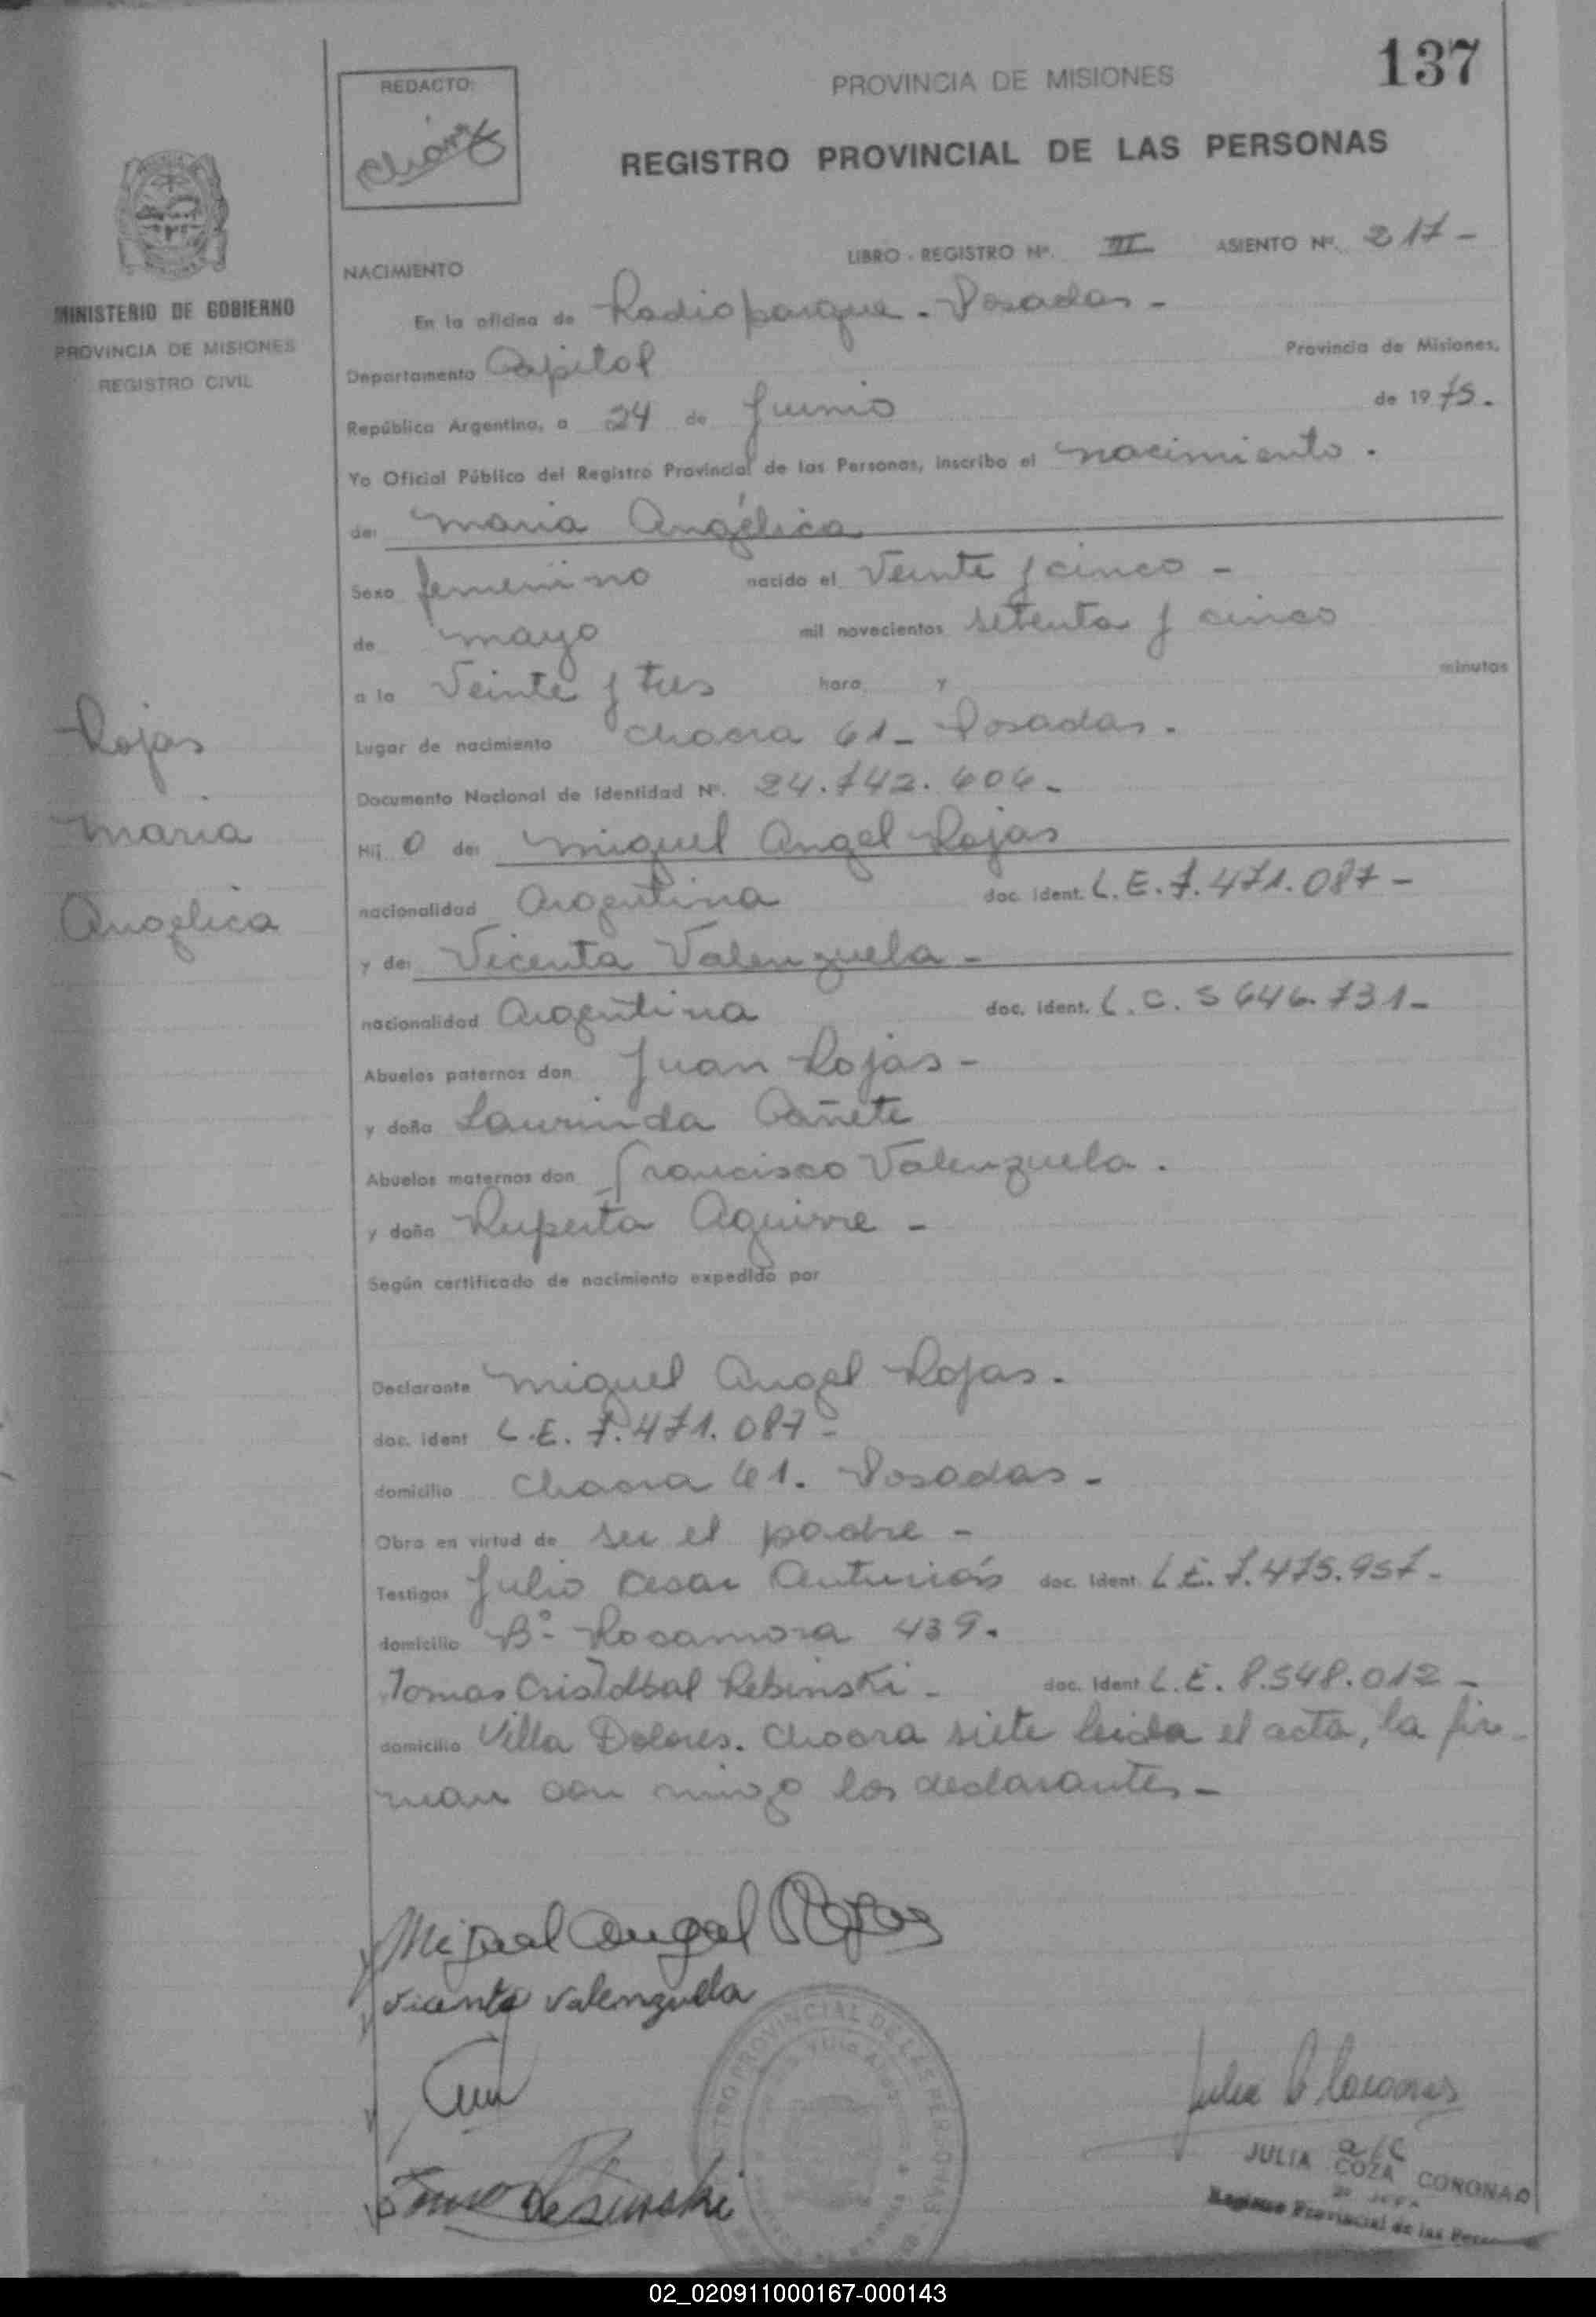 137
REDACTO:
PROVINCIA DE MISIONES
REGISTRO PROVINCIAL DE LAS PERSONAS
LIBRO - REGISTRO Nº. III ASIENTO Nº. 217 -
NACIMIENTO
MINISTERIO DE GOBIERNO
PROVINCIA DE MISIONES
REGISTRO CIVIL
En la oficina de Radioparque - Posadas -
Departamento Capital Provincia de Misiones,
República Argentina, a 24 de Junio de 1975.
Yo Oficial Público del Registro Provincial de las Personas, inscribo el nacimiento.
de: Maria Angélica
Sexo femenino nacido el Veinte y cinco -
de mayo mil novecientos setenta y cinco
a la Veinte y tres hora y minutos
Lugar de nacimiento Chacra 61 - Posadas.
Documento Nacional de Identidad Nº. 24.742.606 -
Hij o de: Miguel Angel Rojas
nacionalidad Argentina doc. ident. L.E. 7.471.087 -
y de: Vicenta Valenzuela -
nacionalidad Argentina doc. ident. L.C. 5 646.731 -
Abuelos paternos don Juan Rojas -
y doña Laurinda Cañete
Abuelos maternos don Francisco Valenzuela.
y doña Ruperta Aguirre -
Según certificado de nacimiento expedido por
Declarante Miguel Angel Rojas.
doc. ident L.E. 7.471.087 -
domicilio Chacra 61. Posadas -
Obra en virtud de ser el padre -
Testigos Julio Cesar doc. Ident L.E. 7.475.957 -
domicilio Bº- Rocamora 439.
Tomas Cristobal Rebinski - doc. Ident L.E. 8.548.012 -
domicilio Villa Dolores. Chacra siete leida el acta, la fir-
man con migo los declarantes -
Rojas
Maria
Angelica
Miguel Angel Rojas
Vicenta Valenzuela
JULIA COZA CORONAO
Registro Provincial de las
02_020911000167-000143